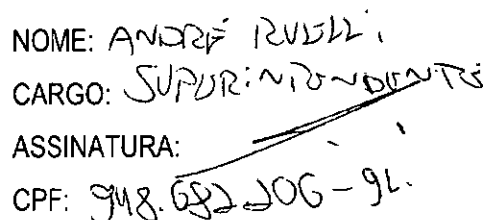 NOME: ANDRÉ RUELLI
CARGO: SUPERINTENDENTE
ASSINATURA:
CPF: 948.682.206-91.